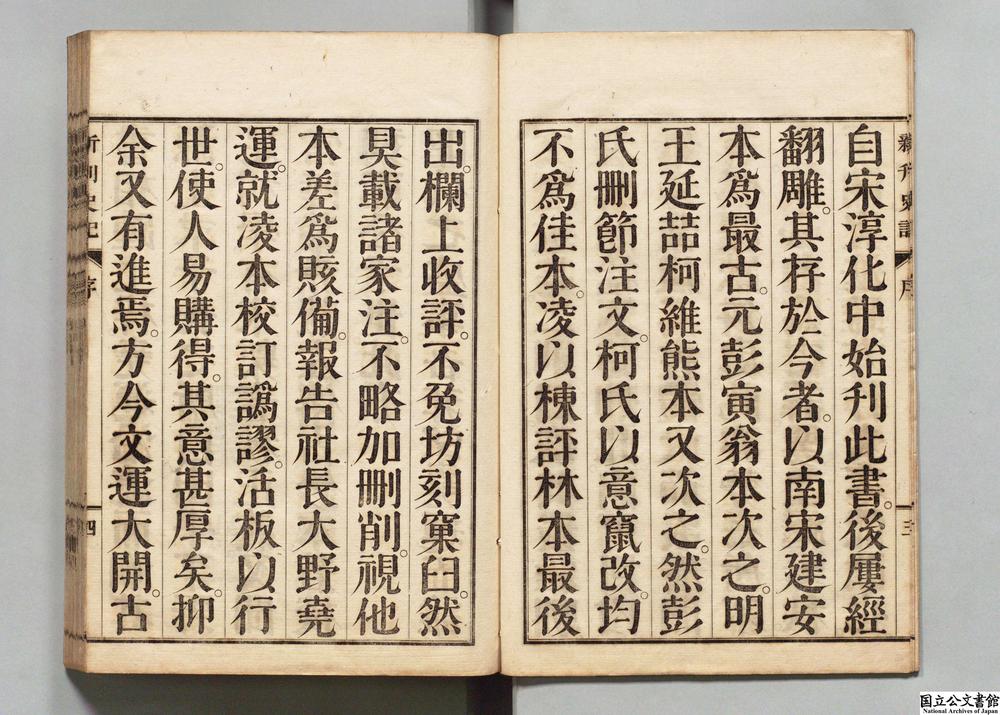 自宋淳化中始刋此書。後屢經
翻雕。其存於今者。以南宋建安
本爲最古。元彭寅翁本次之。明
王延喆柯維熊本又次之。然彭
氏刪節注文。柯氏以意竄改。均
不爲佳本。凌以棟評林本最後
出。欄上收評。不免坊刻窠臼。然
具載諸家注。不略加刪削。視他
本差爲賅備。報告社長大野堯
運。就凌本校訂譌謬。活板以行
世。使人易購得。其意甚厚矣。抑
余又有進焉。方今文運大開。古
序
三
新刊史記
序
四
国立公文書館
National Archives of Japan